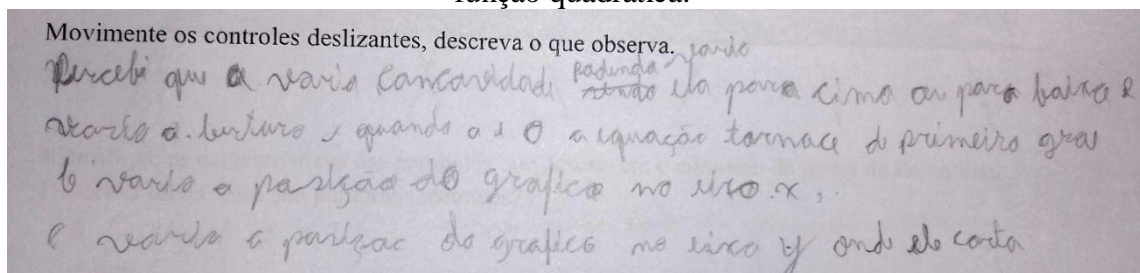 função quadrática.
Movimente os controles deslizantes, descreva o que observa.
Percebi que a varia concavidade podendo ela para cima ou para baixo e
varia a bertura, quando a é 0 a equação tornace do primeiro grau
b varia a posição do grafico no eixo x,
c varia a posição do grafico no eixo y onde ele corta